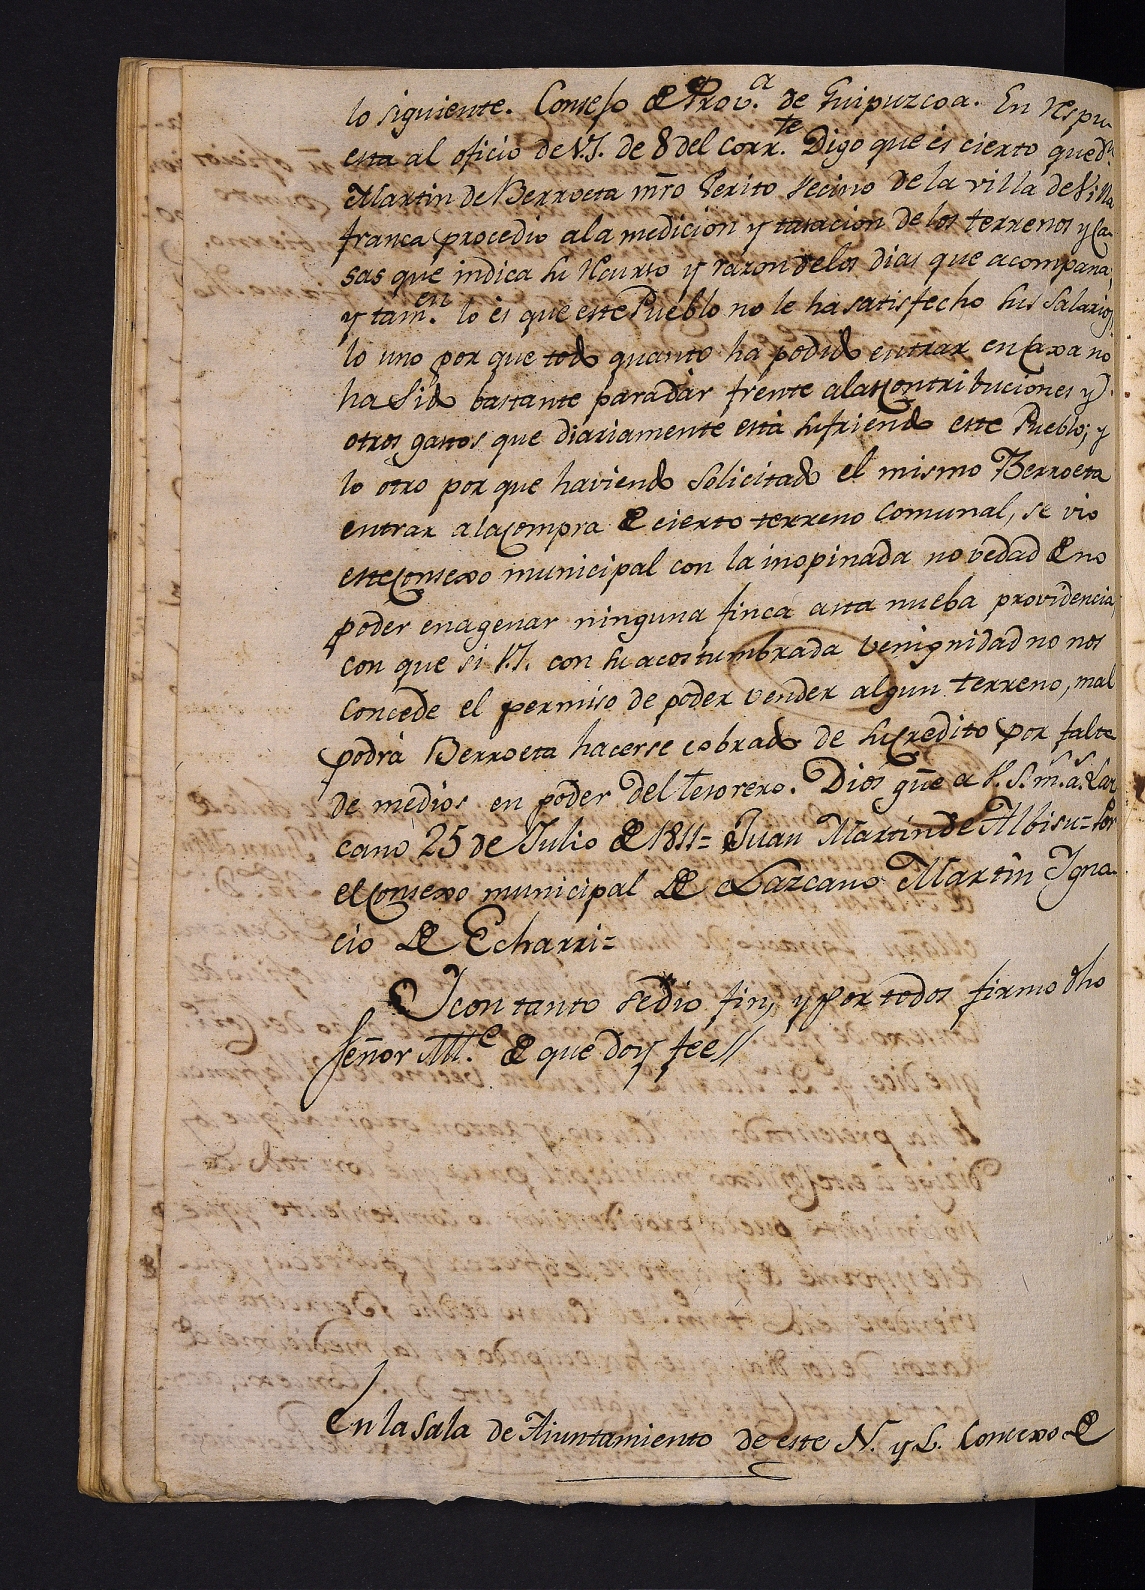 lo siguiente. Consejo de Prov.ª de Guipuzcoa. En respu-
esta al oficio de V.S. de 8 del corr.te Digo que és cierto que d.n
Martin de Berroeta mro Perito vecino de la villa de Villa
franca procedió ala medicion y tasacion de los terrenos y Ca-
sas que indica su recurso y razon delos dias que acompaña;
y tam.en lo és que este Pueblo no le ha satisfecho sus Salarios,
lo uno por que todo quanto ha podido entrar en Caxa no
ha Sido bastante paradàr frente alas contribuciones y
otros gastos que diariamente està sufriendo este Pueblo; y
lo otro por que haviendo Solicitado el mismo Berroeta
entrar ala compra de cierto terreno Comunal, se vio
este consexo municipal con la inopinada novedad de no
poder enagenar ninguna finca asta nueba providencia,
con que si V.S. con su acostumbrada venignidad no nos
Concede el permiso de poder vender algun terreno, mal
podrà Berroeta hacerse cobrado de su credito por falta
de medios en poder del tesorero. Dios gũe a V.S. m.s a.s Laz
cano 25 de Julio de 1811= Juan Martin de Albisu= Por
el consexo municipal de Lazcano Martin Igna-
cio de Echarri=
I con tanto se dio fin, y por todos firmo dho
señor M.e de que doy fee//
En la Sala de Aiuntamiento de este N. y L. Concexo de